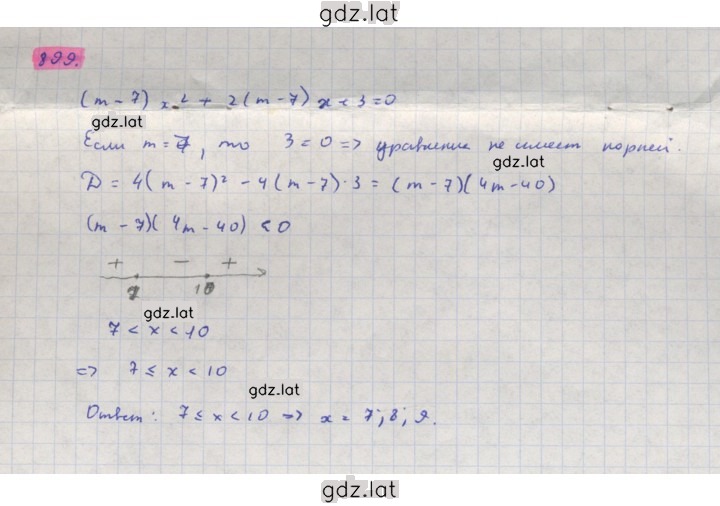 gdz.lat
899.
(m-7)x² + 2(m-7)x + 3 = 0
gdz.lat
Если m = 7, то 3 = 0 => уравнение не имеет корней.
gdz.lat
D = 4(m-7)² - 4(m-7)·3 = (m-7)(4m-40)
(m-7)(4m-40) < 0
+ - +
7 10
gdz.lat
7 < x < 10
=> 7 ≤ x < 10
gdz.lat
Ответ: 7 ≤ x < 10 => x = 7; 8; 9.
gdz.lat